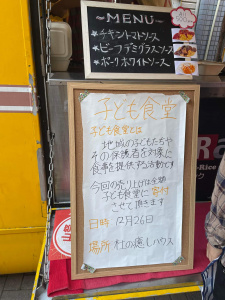 MENU
★チキントマトソース
★ビーフデミグラスソース
★ポークホワイトソース
子ども食堂
子ども食堂とは
地域の子どもたちや
その保護者を対象に
食事を提供する活動です
今回の売り上げは全額
子ども食堂に寄付
させて頂きます
日時 12月26日
場所 杜の癒しハウス